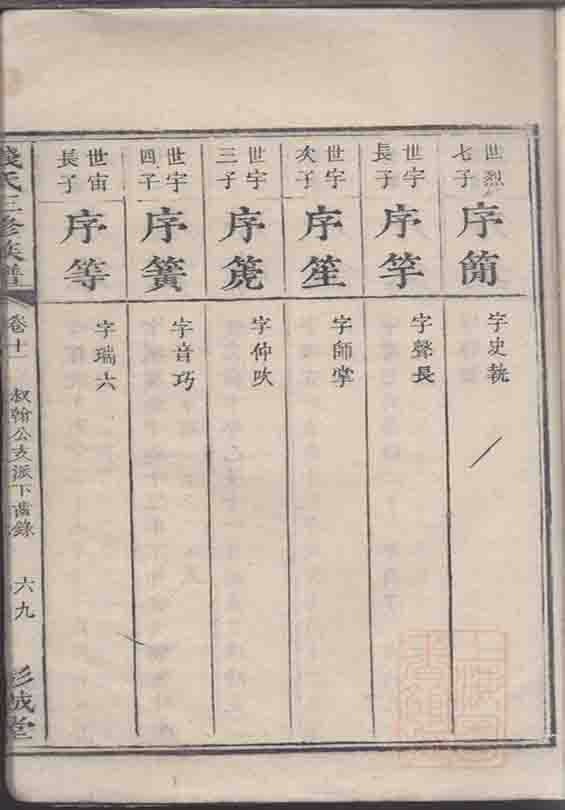 世烈
七子
序簡
字史執
世宇
長子
序竽
字聲長
世宇
次子
序笙
字師掌
世宇
三子
序箎
字仲吹
世宇
四子
序簧
字音巧
世宙
長子
序等
字瑞六
錢氏三修族譜
卷十一
叔翰公支派下齒錄
六九
彭城堂